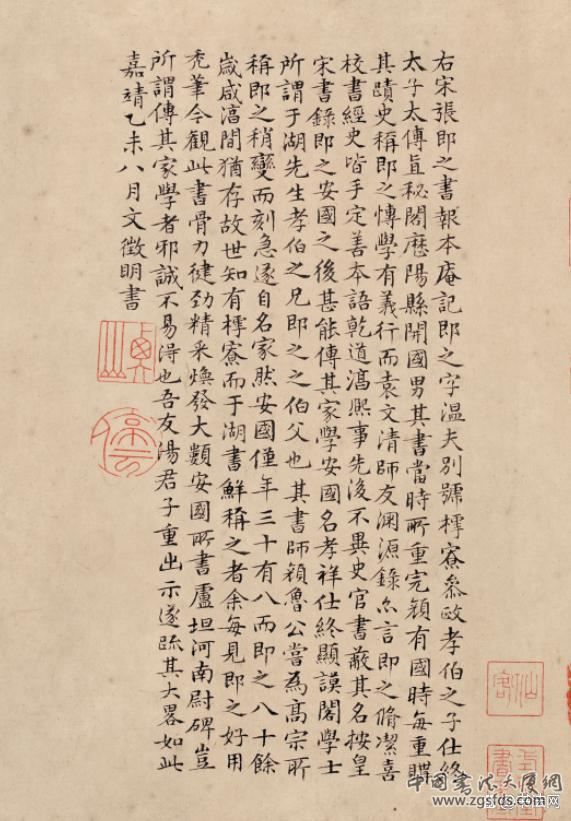 右宋張即之書報本庵記即之字溫夫別號樗寮參政孝伯之子仕終
太子太傅直秘閣歷陽縣開國男其書當時所重完顏有國時每重購
其蹟史稱即之博學有義行而袁文清師友淵源錄亦言即之脩潔喜
校書經史皆手定善本語乾道淳熙事先後不異史官書蔽其名按皇
宋書錄即之安國之後甚能傳其家學安國名孝祥仕終顯謨閣學士
所謂于湖先生孝伯之兄即之之伯父也其書師顏魯公嘗為高宗所
稱即之稍變而刻急遂自名家然安國僅年三十有八而即之八十餘
歲咸淳間猶存故世知有樗寮而于湖書鮮稱之者余每見即之好用
禿筆今觀此書骨力健勁精采煥發大類安國所書盧坦河南尉碑豈
所謂傳其家學者邪誠不易得也吾友湯君子重出示遂疏其大畧如此
嘉靖乙未八月文徵明書
中国书法大厦网
www.zgsfds.com